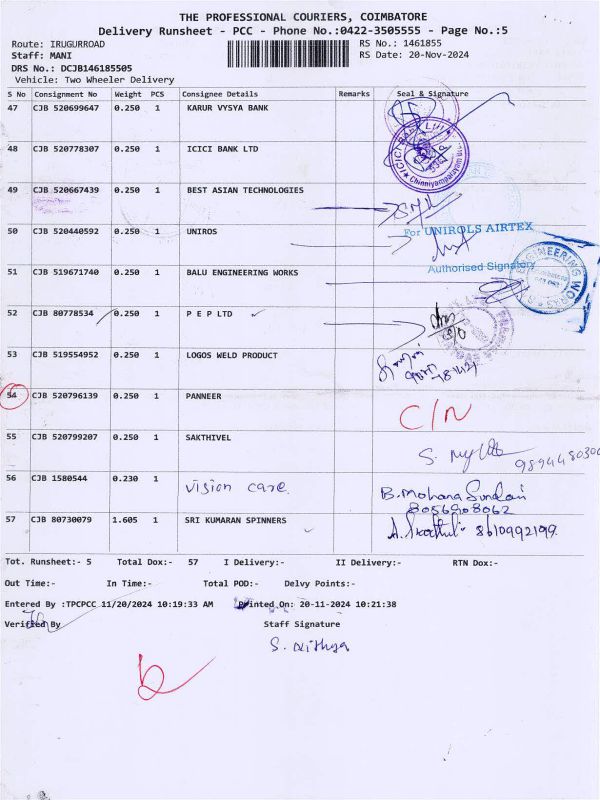 THE PROFESSIONAL COURIERS, COIMBATORE
Delivery Runsheet - PCC - Phone No.:0422-3505555 - Page No.:5
Route: IRUGURROAD RS No.: 1461855
Staff: MANI RS Date: 20-Nov-2024
DRS No.: DCJB146185505
Vehicle: Two Wheeler Delivery
S No Consignment No Weight PCS Consignee Details Remarks Seal & Signature
47 CJB 520699647 0.250 1 KARUR VYSYA BANK
48 CJB 520778307 0.250 1 ICICI BANK LTD
ICICI BANK LTD
Chinniyampalayam
49 CJB 520667439 0.250 1 BEST ASIAN TECHNOLOGIES
50 CJB 520440592 0.250 1 UNIROS For UNIROLS AIRTEX
Authorised Signatory
51 CJB 519671740 0.250 1 BALU ENGINEERING WORKS
ENGINEERING WORKS
52 CJB 80778534 0.250 1 P E P LTD
53 CJB 519554952 0.250 1 LOGOS WELD PRODUCT
54 CJB 520796139 0.250 1 PANNEER C/N
55 CJB 520799207 0.250 1 SAKTHIVEL
56 CJB 1580544 0.230 1 Vision care. B. Mohana Sundari
8056908062
57 CJB 80730079 1.605 1 SRI KUMARAN SPINNERS 8610992199
Tot. Runsheet:- 5 Total Dox:- 57 I Delivery:- II Delivery:- RTN Dox:-
Out Time:- In Time:- Total POD:- Delvy Points:-
Entered By :TPCPCC 11/20/2024 10:19:33 AM Printed On: 20-11-2024 10:21:38
Verified By Staff Signature
S. Nithya